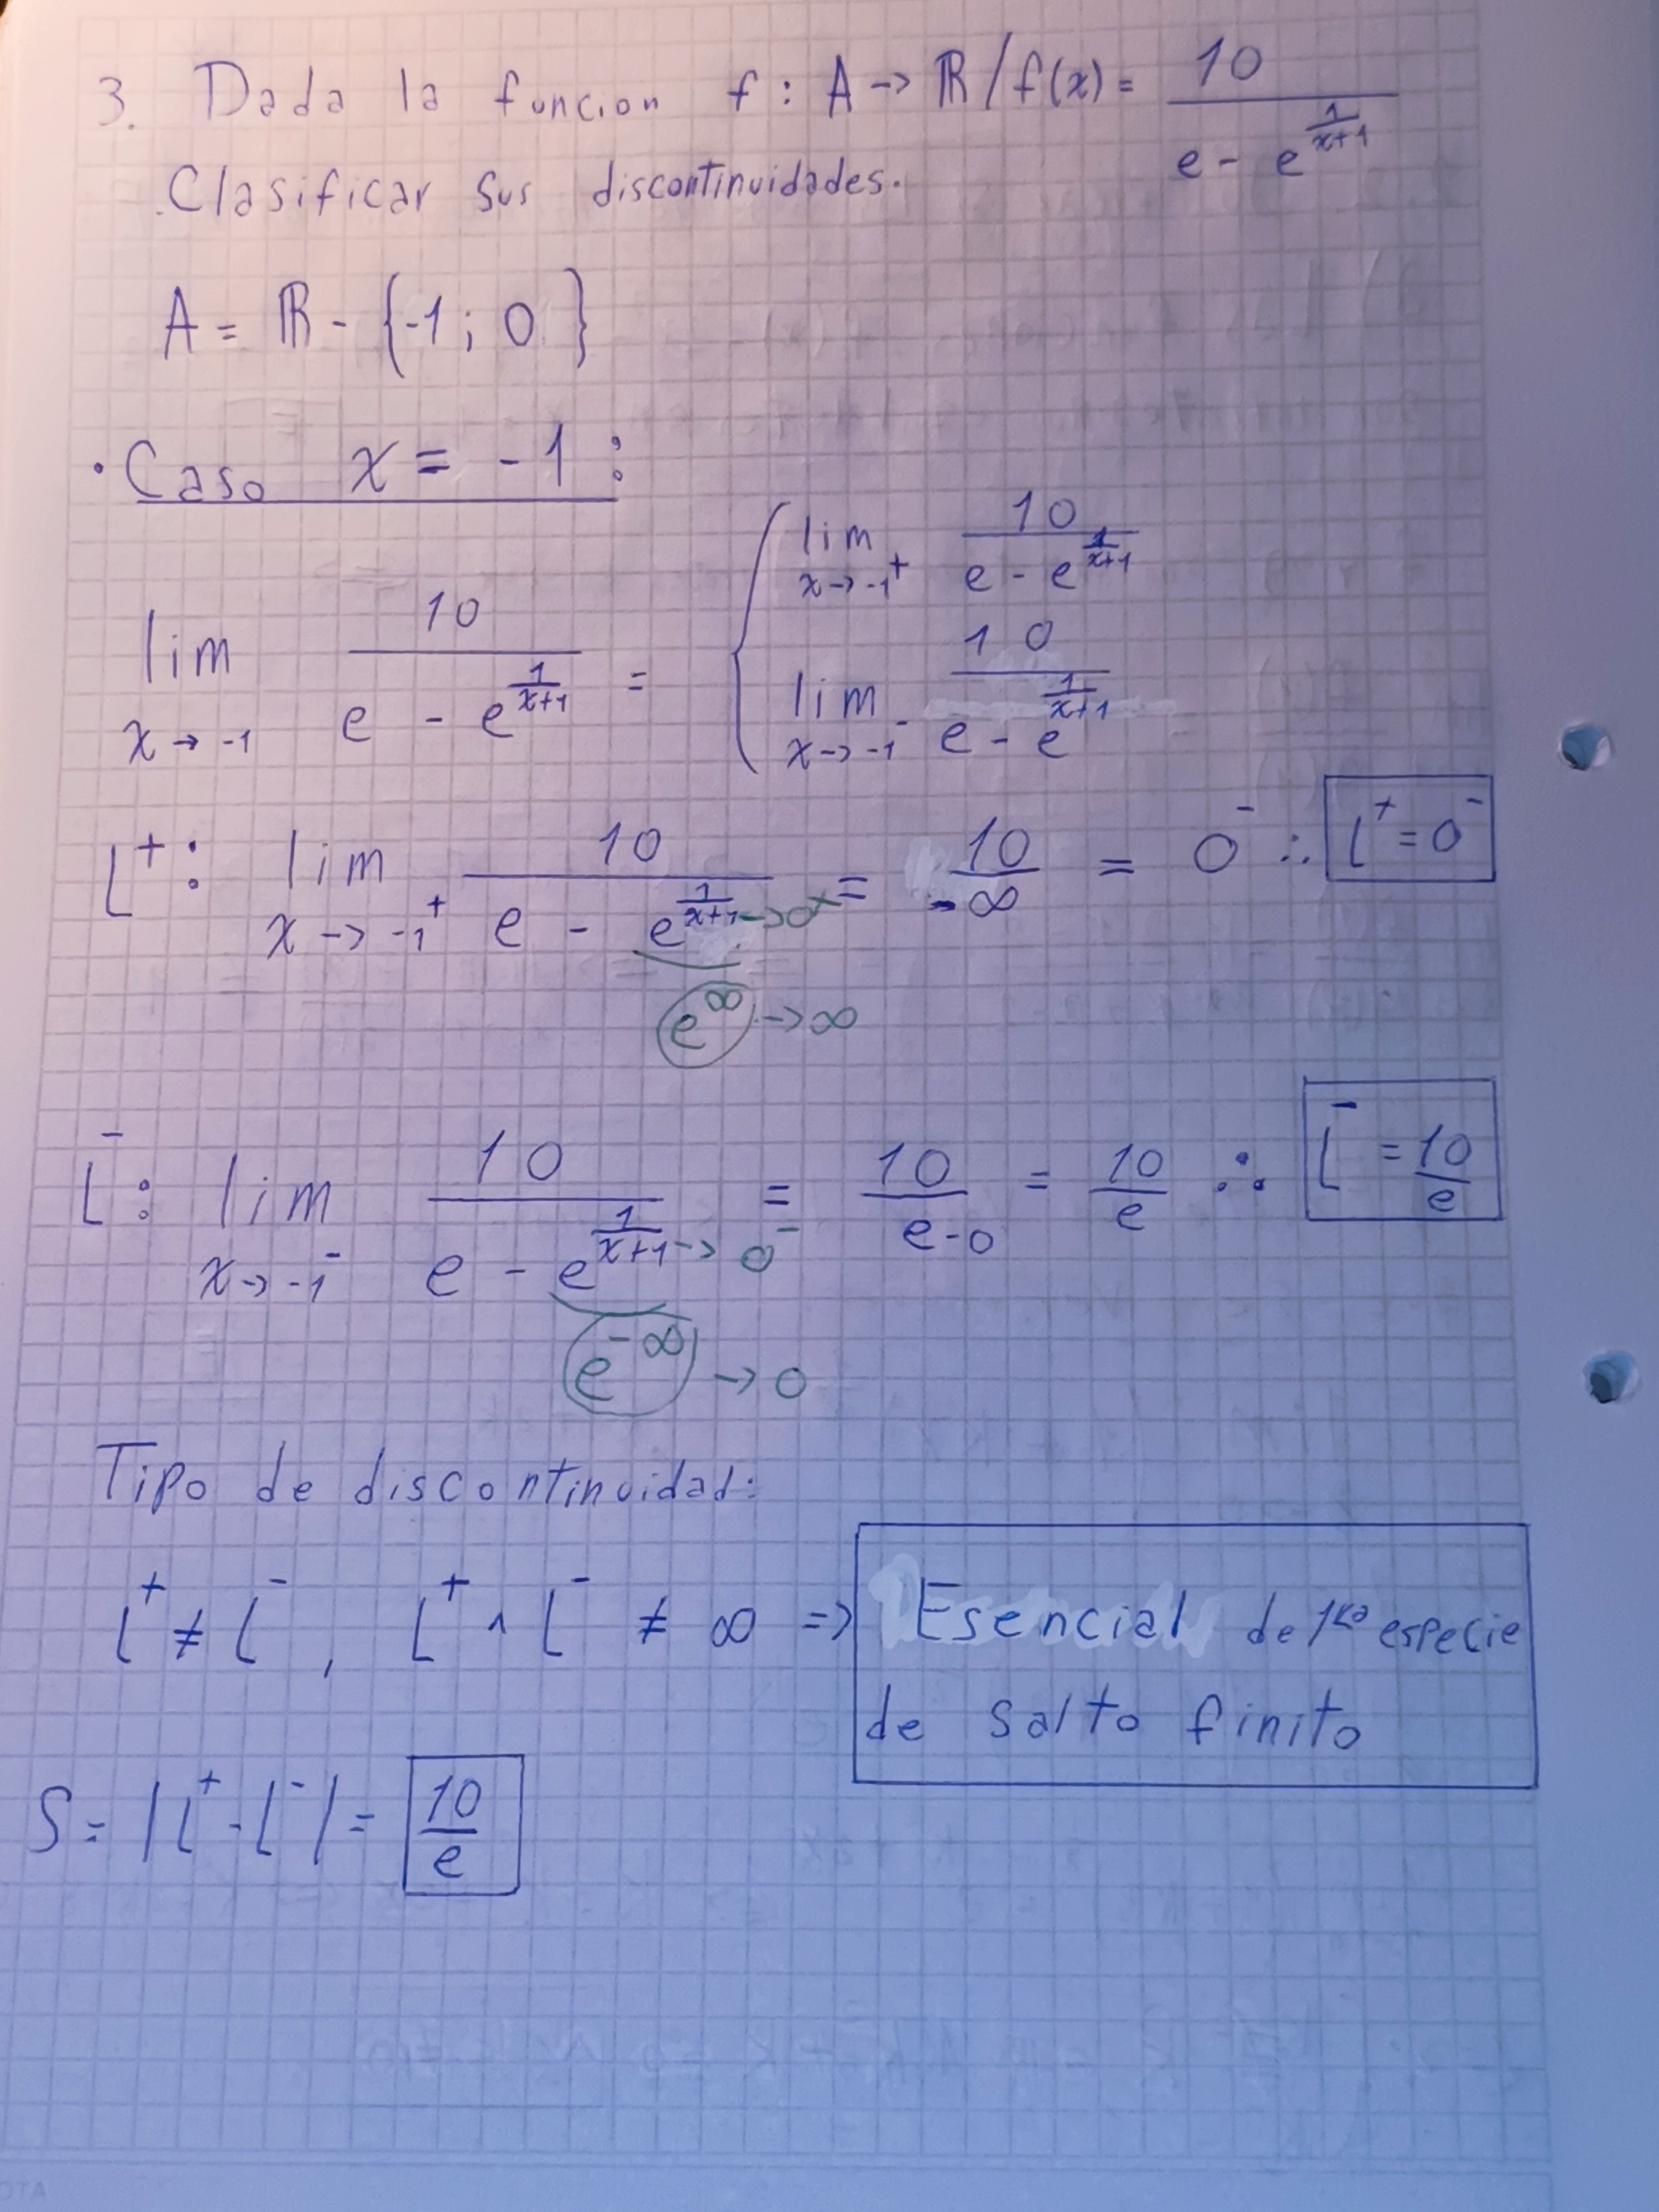 3. Dada la funcion f : A -> ℝ / f(x) = 10 / (e - e^(1/(x+1)))
Clasificar sus discontinuidades.
A = ℝ - {-1 ; 0}
· Caso x = -1 :
lim x->-1 10 / (e - e^(1/(x+1))) = { lim x->-1⁺ 10 / (e - e^(1/(x+1)))
lim x->-1⁻ 10 / (e - e^(1/(x+1)))
L⁺: lim x->-1⁺ 10 / (e - e^(1/(x+1))) -> 0⁺ = 10 / -∞ = 0⁻ ∴ L⁺ = 0⁻
e^∞ -> ∞
L⁻: lim x->-1⁻ 10 / (e - e^(1/(x+1))) -> 0⁻ = 10 / (e-0) = 10/e ∴ L⁻ = 10/e
e^-∞ -> 0
Tipo de discontinuidad:
L⁺ ≠ L⁻ , L⁺ ∧ L⁻ ≠ ∞ => Esencial de 1ra especie
de salto finito
S = |L⁺ - L⁻| = 10/e